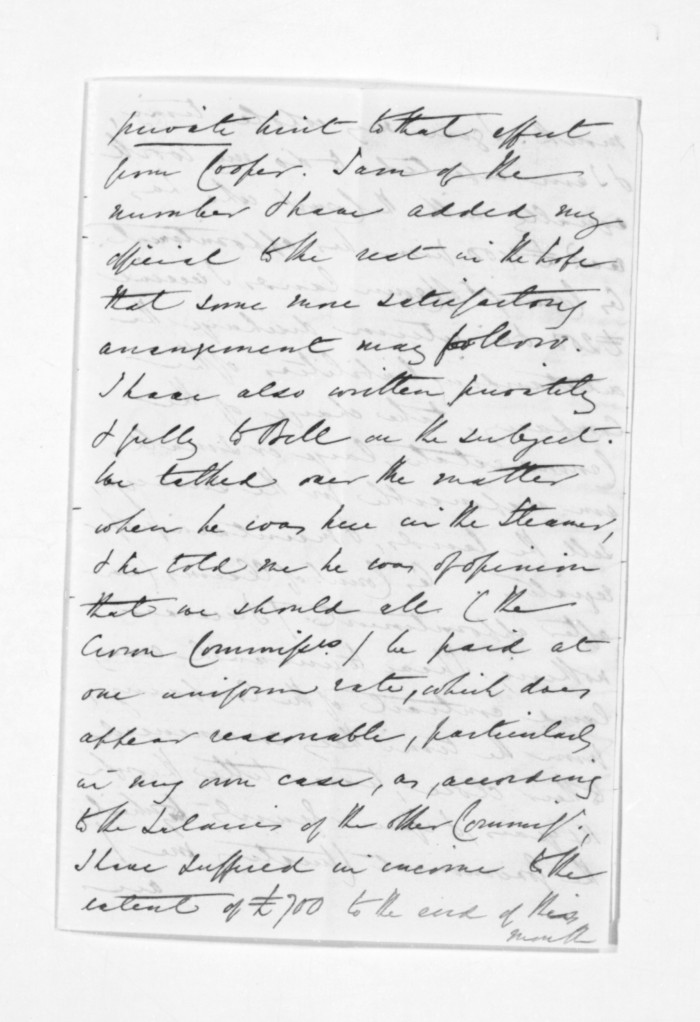 private hint to that effect
from Cooper. I am of the
number & have added my
official to the rest in the hope
that some more satisfactory
arrangement may follow.
I have also written privately
& fully to Bell on the subject.
We talked over the matter
when he was here in the Steamer,
& he told me he was of opinion
that we should all (the
Crown Commissrs) be paid at
one uniform rate, which does
appear reasonable, particularly
in my own case, as, according
to the Salaries of the other Commissr.,
I have suffered in income to the
extent of £700 to the end of this
month